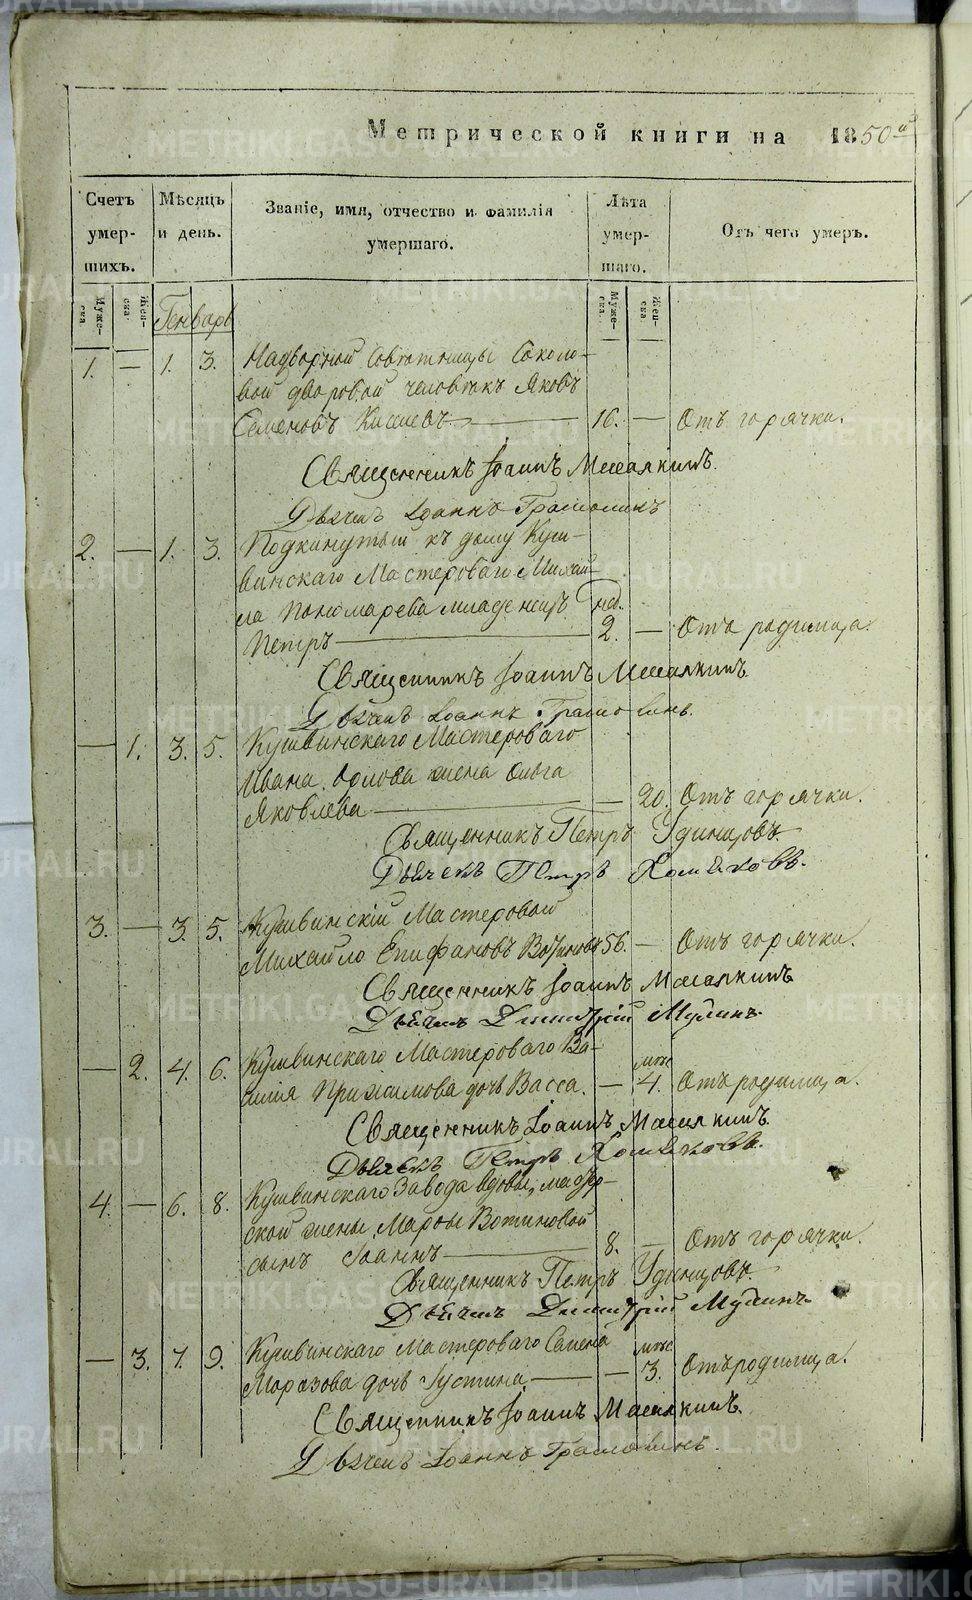 Метрической книги на 1850й
Счетъ умер-шихъ.
Мѣсяцъ и день.
Званіе, имя, отчество и фамилія умершаго.
Лѣта умер-шаго.
Отъ чего умеръ.
Муже-ска.
Жен-ска.
Генварь
Муже-ска.
Жен-ска.
1. — 1. 3. Надворной Совѣтницы Соколо-
вой дворовой человѣкъ Яковъ
Семеновъ 16. — Отъ горячки.
Священникъ Іоаннъ
Дьячекъ Іоаннъ
2. — 1. 3. Подкинутый къ дому Куш-
винскаго Мастероваго Михаи-
ла Пономарева младенецъ нед.
Петръ 2. — Отъ родимца.
Священникъ Іоаннъ
Дьячекъ Іоаннъ
— 1. 3. 5. Кушвинскаго Мастероваго
Ивана Орлова жена Ольга
Яковлева — 20. Отъ горячки.
Священникъ Петръ Удинцовъ.
Дьячекъ Петръ Хомяковъ.
3. — 3. 5. Кушвинскій Мастеровой
Михайло Епифановъ Вотиновъ 56. — Отъ горячки.
Священникъ Іоаннъ
Дьячекъ Димитрій Мулинъ.
— 2. 4. 6. Кушвинскаго Мастероваго Ва- мѣс
силія дочь Васса. — 4. Отъ родимца.
Священникъ Іоаннъ
Дьячекъ Петръ Хомяковъ.
4. — 6. 8. Кушвинскаго Завода вдовы, мастер-
ской жены Марфы Вотиновой
сынъ Іоаннъ 8. — Отъ горячки.
Священникъ Петръ Удинцовъ.
Дьячекъ Димитрій Мулинъ
— 3. 7. 9. Кушвинскаго Мастероваго Семена мѣс
Морозова дочь Іустина — 3. Отъ родимца.
Священникъ Іоаннъ
Дьячекъ Іоаннъ
METRIKI.GASO-URAL.RU